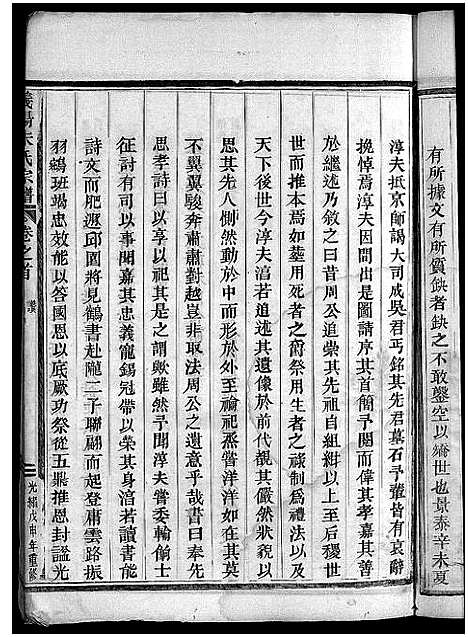 有所據文有所質缺者缺之不敢鑿空以繑世也景泰辛未夏
淳夫抵京師謁大司成吳君丐銘其先君墓石予輩皆有哀辭
挽悼焉淳夫因間出是圖請序其首簡予閱而偉其孝嘉其善
於繼述乃敘之曰昔周公追崇其先祖自組紺以上至后稷世
世而推本焉如塟用死者之爵祭用生者之祿制為禮法以及
天下後世今淳夫涫若追述其遺像於前代覩其儼然狀貌以
思其先人惻然動於中而形於外至於禴祀烝嘗洋洋如在其莫
不翼翼駿奔肅肅對越豈非取法周公之遺意乎哉書曰奉先
思孝詩曰以享以祀其是之謂歟雖然予聞淳夫嘗委輸倫士
征討有司以事聞嘉其忠義寵錫冠帶以榮其身涫若讀書能
詩文而肥遯邱園將見鶴書赴隴二子聯翩而起登庸雲路振
羽鵷班竭忠效能以答國恩以底厥功祭從五鼎推恩封謚光
義陽朱氏宗譜
卷之首
光緒戊申年重修